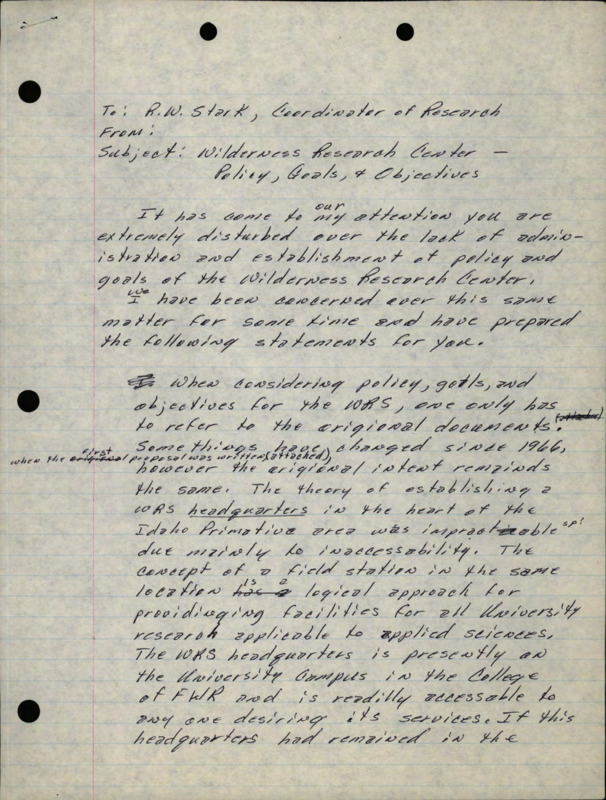 To: R.W. Stark, Coordinator of Research
From:
Subject: Wilderness Research Center —
Policy, Goals, & Objectives
our
It has come to my attention you are
extremely disturbed over the lack of admin-
istration and establishment of policy and
goals of the Wilderness Research Center.
We
I have been concerned over this same
matter for some time and have prepared
the following statements for you.
When considering policy, goals, and
objectives for the WRS, one only has
to refer to the origional documents. (attached)
Some things have changed since 1966,
when the origional first proposal was written (attached),
however the origional intent remainds
the same. The theory of establishing a
WRS headquarters in the heart of the
Idaho Primative area was impracticable sp!
due mainly to inaccessability. The
concept of a field station in the same
is a
location has a logical approach for
providinging facilities for all University
research applicable to applied sciences.
The WRS headquarters is presently on
the University Campus in the College
of FWR and is readilly accessable to
any one desiring its services. If this
headquarters had remained in the